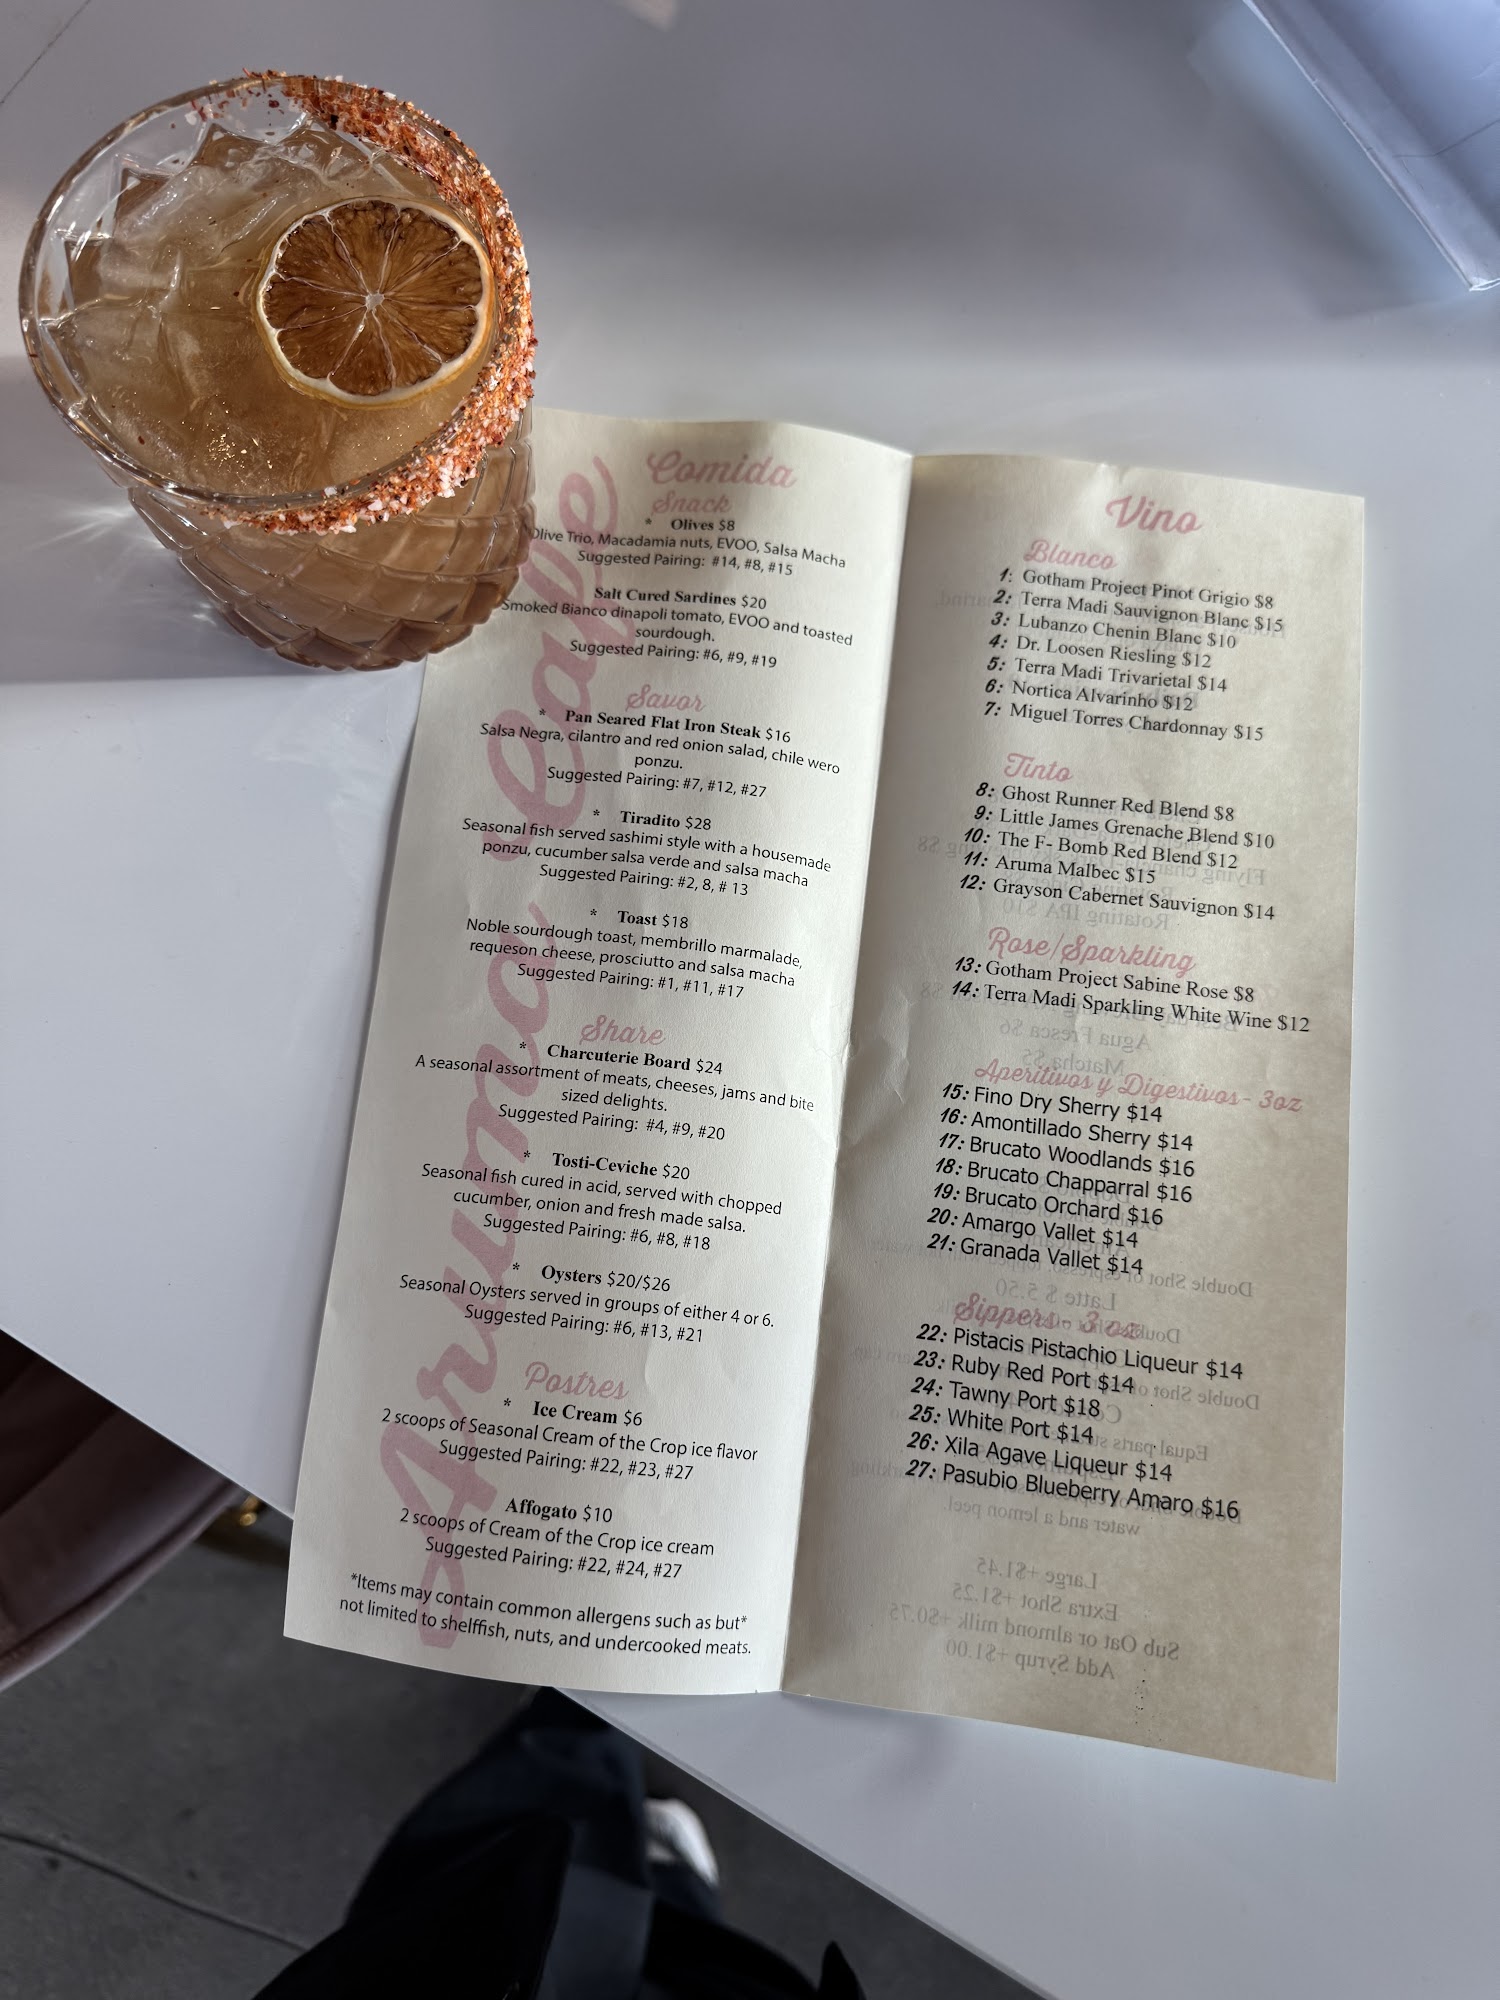 Aruma Cafe
Comida
Snack
* Olives $8
Olive Trio, Macadamia nuts, EVOO, Salsa Macha
Suggested Pairing: #14, #8, #15
Salt Cured Sardines $20
Smoked Bianco dinapoli tomato, EVOO and toasted
sourdough.
Suggested Pairing: #6, #9, #19
Savor
* Pan Seared Flat Iron Steak $16
Salsa Negra, cilantro and red onion salad, chile wero
ponzu.
Suggested Pairing: #7, #12, #27
* Tiradito $28
Seasonal fish served sashimi style with a housemade
ponzu, cucumber salsa verde and salsa macha
Suggested Pairing: #2, 8, # 13
* Toast $18
Noble sourdough toast, membrillo marmalade,
requeson cheese, prosciutto and salsa macha
Suggested Pairing: #1, #11, #17
Share
* Charcuterie Board $24
A seasonal assortment of meats, cheeses, jams and bite
sized delights.
Suggested Pairing: #4, #9, #20
* Tosti-Ceviche $20
Seasonal fish cured in acid, served with chopped
cucumber, onion and fresh made salsa.
Suggested Pairing: #6, #8, #18
* Oysters $20/$26
Seasonal Oysters served in groups of either 4 or 6.
Suggested Pairing: #6, #13, #21
Postres
* Ice Cream $6
2 scoops of Seasonal Cream of the Crop ice flavor
Suggested Pairing: #22, #23, #27
Affogato $10
2 scoops of Cream of the Crop ice cream
Suggested Pairing: #22, #24, #27
*Items may contain common allergens such as but*
not limited to shelffish, nuts, and undercooked meats.
Vino
Blanco
1: Gotham Project Pinot Grigio $8
2: Terra Madi Sauvignon Blanc $15
3: Lubanzo Chenin Blanc $10
4: Dr. Loosen Riesling $12
5: Terra Madi Trivarietal $14
6: Nortica Alvarinho $12
7: Miguel Torres Chardonnay $15
Tinto
8: Ghost Runner Red Blend $8
9: Little James Grenache Blend $10
10: The F- Bomb Red Blend $12
11: Aruma Malbec $15
12: Grayson Cabernet Sauvignon $14
Rose/Sparkling
13: Gotham Project Sabine Rose $8
14: Terra Madi Sparkling White Wine $12
Aperitivos y Digestivos- 3oz
15: Fino Dry Sherry $14
16: Amontillado Sherry $14
17: Brucato Woodlands $16
18: Brucato Chapparral $16
19: Brucato Orchard $16
20: Amargo Vallet $14
21: Granada Vallet $14
Sippers - 3 oz
22: Pistacis Pistachio Liqueur $14
23: Ruby Red Port $14
24: Tawny Port $18
25: White Port $14
26: Xila Agave Liqueur $14
27: Pasubio Blueberry Amaro $16
water and a lemon peel.
Large +$1.45
Extra Shot +$1.25
Sub Oat or almond milk +$0.75
Add Syrup +$1.00